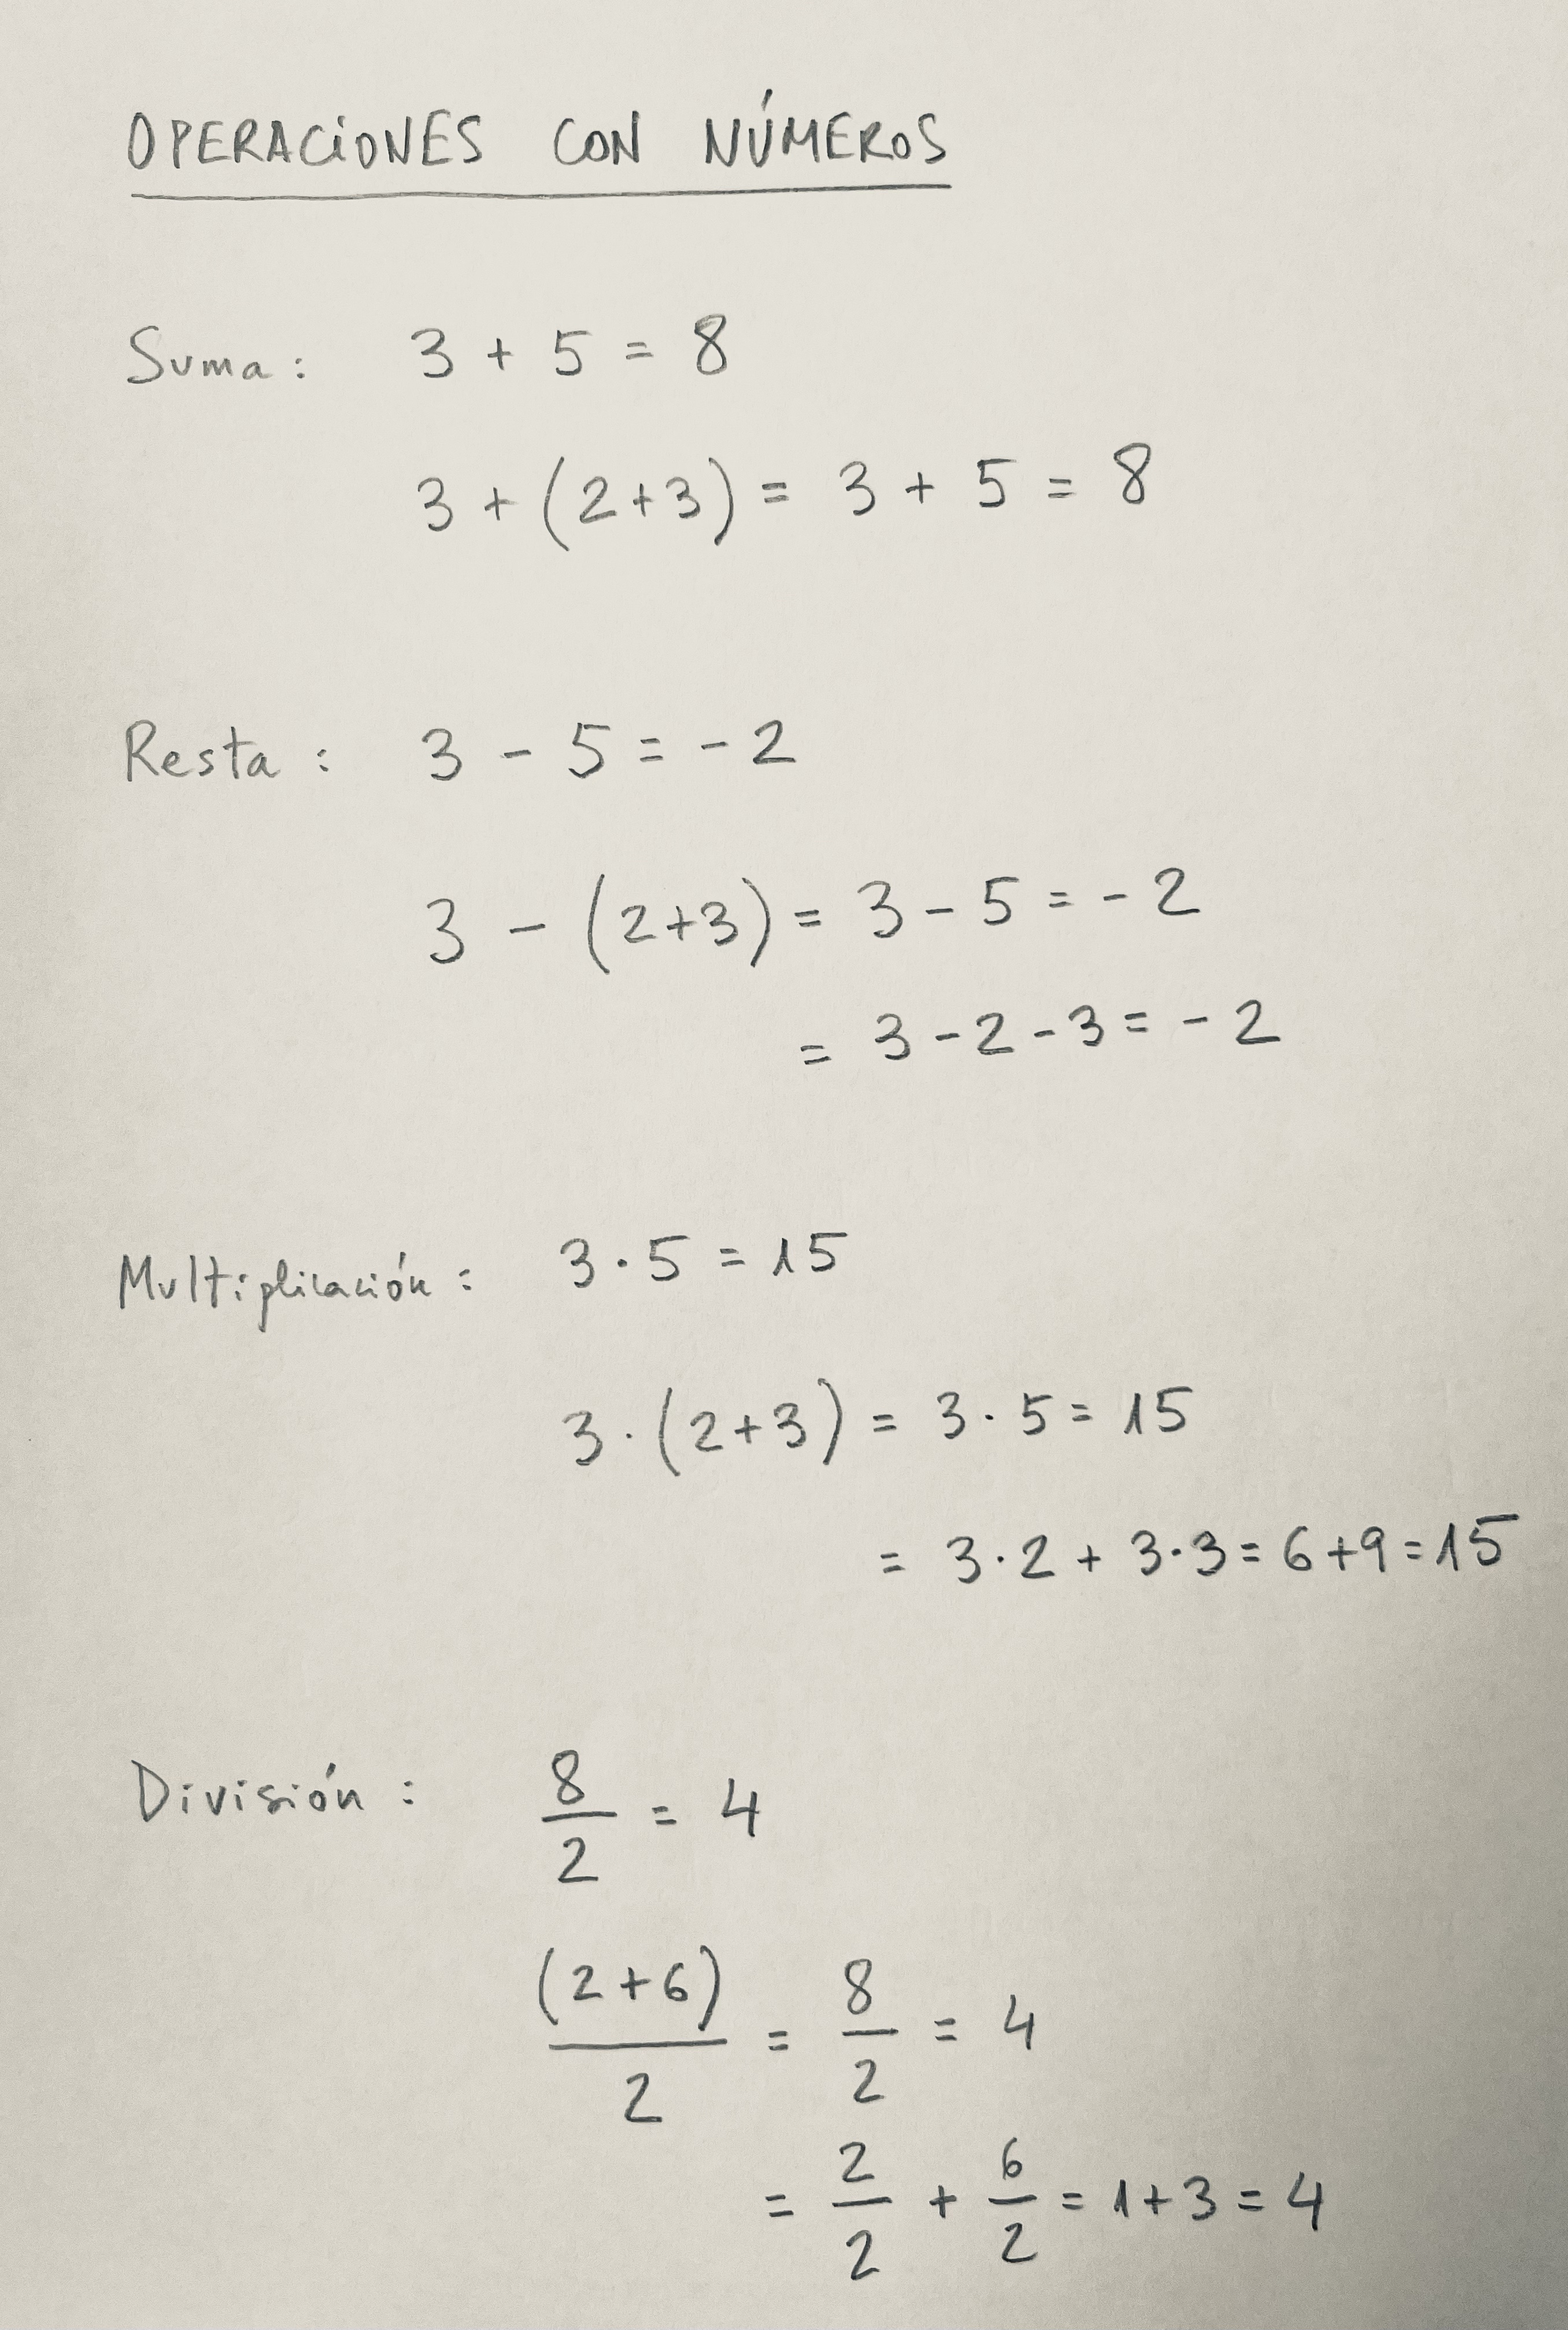 OPERACIONES CON NÚMEROS
Suma: 3 + 5 = 8
3 + (2+3) = 3 + 5 = 8
Resta: 3 - 5 = -2
3 - (2+3) = 3 - 5 = -2
= 3 - 2 - 3 = -2
Multiplicación: 3 · 5 = 15
3 · (2+3) = 3 · 5 = 15
= 3 · 2 + 3 · 3 = 6 + 9 = 15
División: 8/2 = 4
(2+6)/2 = 8/2 = 4
= 2/2 + 6/2 = 1 + 3 = 4